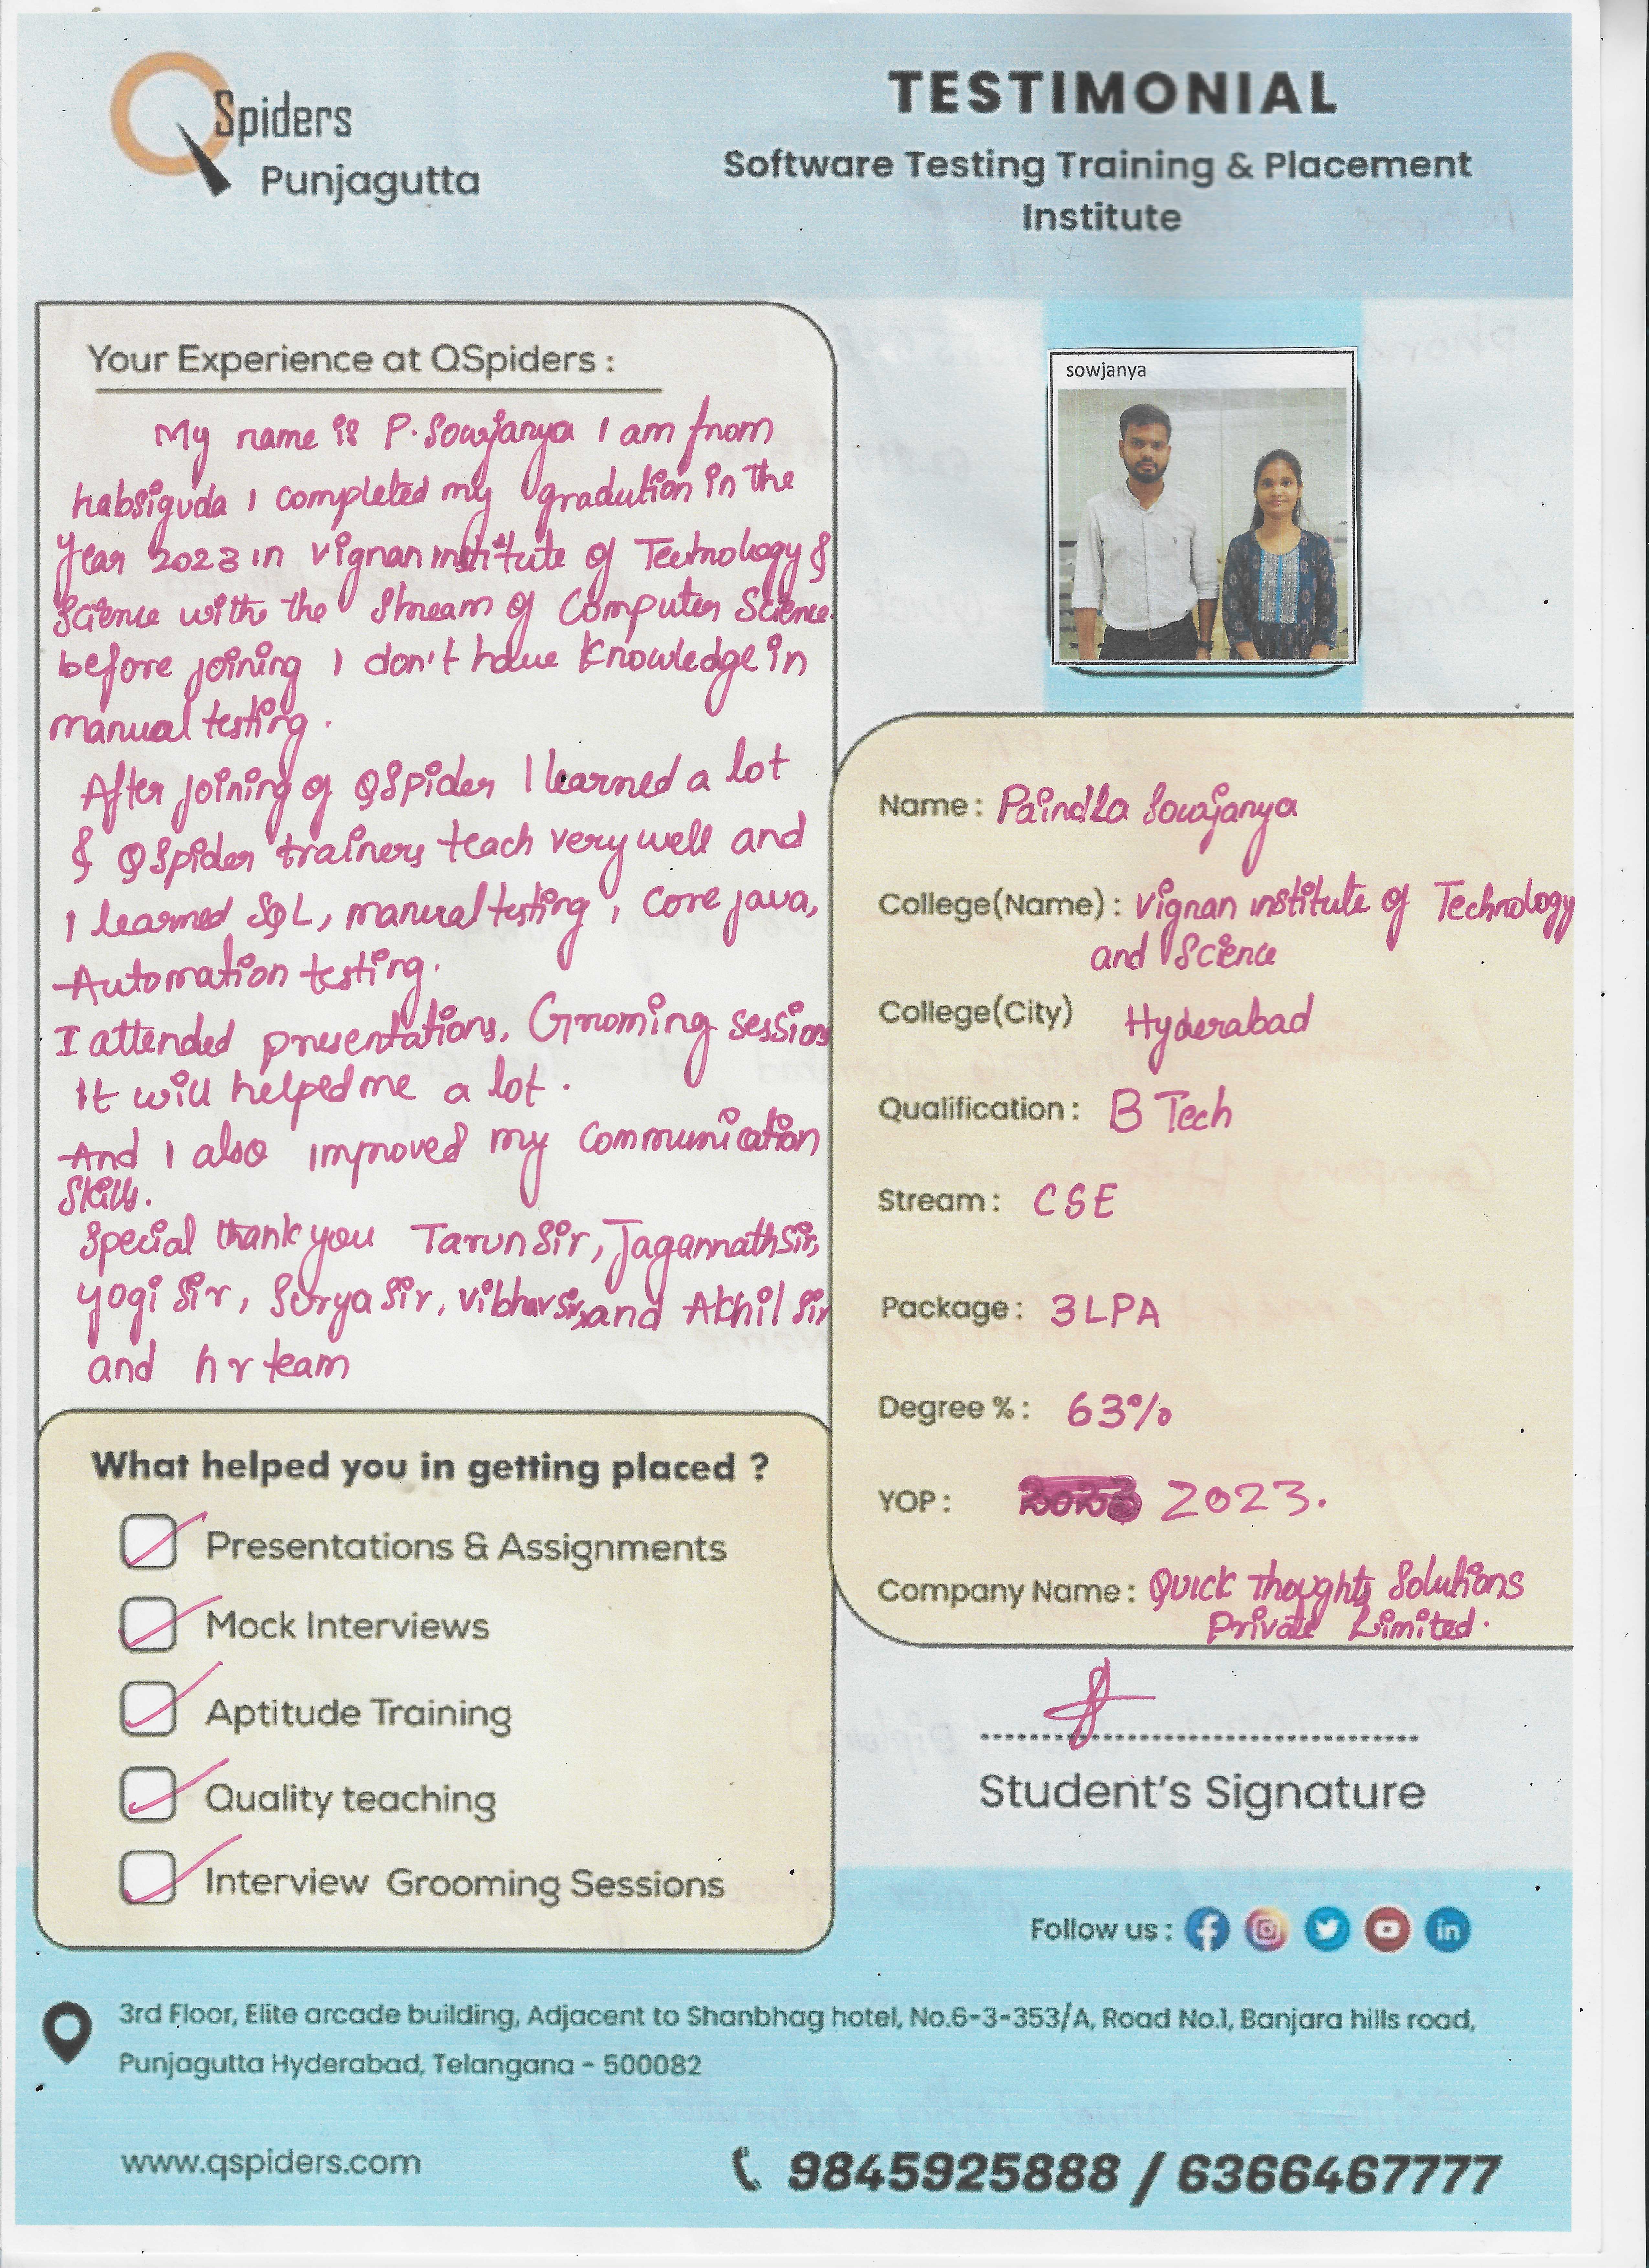 QSpiders
Punjagutta
TESTIMONIAL
Software Testing Training & Placement
Institute
Your Experience at QSpiders :
My name is P. Sowjanya I am from
habsiguda I completed my gradution in the
year 2023 in vignan institute of Technology &
Science with the Stream of Computer Science.
before joining I don't have knowledge in
manual testing.
After joining of QSpider I learned a lot
& QSpider trainers teach very well and
I learned SQL, manual testing, core java,
Automation testing.
I attended presentations, Grooming session
It will helped me a lot.
And I also improved my Communication
Skills.
Special thank you Tarun Sir, Jagannath Sir,
yogi Sir, Surya Sir, Vibhav Sir, and Akhil Sir
and hr team
What helped you in getting placed ?
Presentations & Assignments
Mock Interviews
Aptitude Training
Quality teaching
Interview Grooming Sessions
sowjanya
Name : Paindla Sowjanya
College(Name) : Vignan institute of Technology
and Science
College(City) Hyderabad
Qualification : B Tech
Stream : CSE
Package : 3 LPA
Degree % : 63%
YOP : 2023.
Company Name : Quick Thoughts Solutions
Private Limited.
Student's Signature
Follow us :
3rd Floor, Elite arcade building, Adjacent to Shanbhag hotel, No.6-3-353/A, Road No.1, Banjara hills road,
Punjagutta Hyderabad, Telangana - 500082
www.qspiders.com
9845925888 / 6366467777